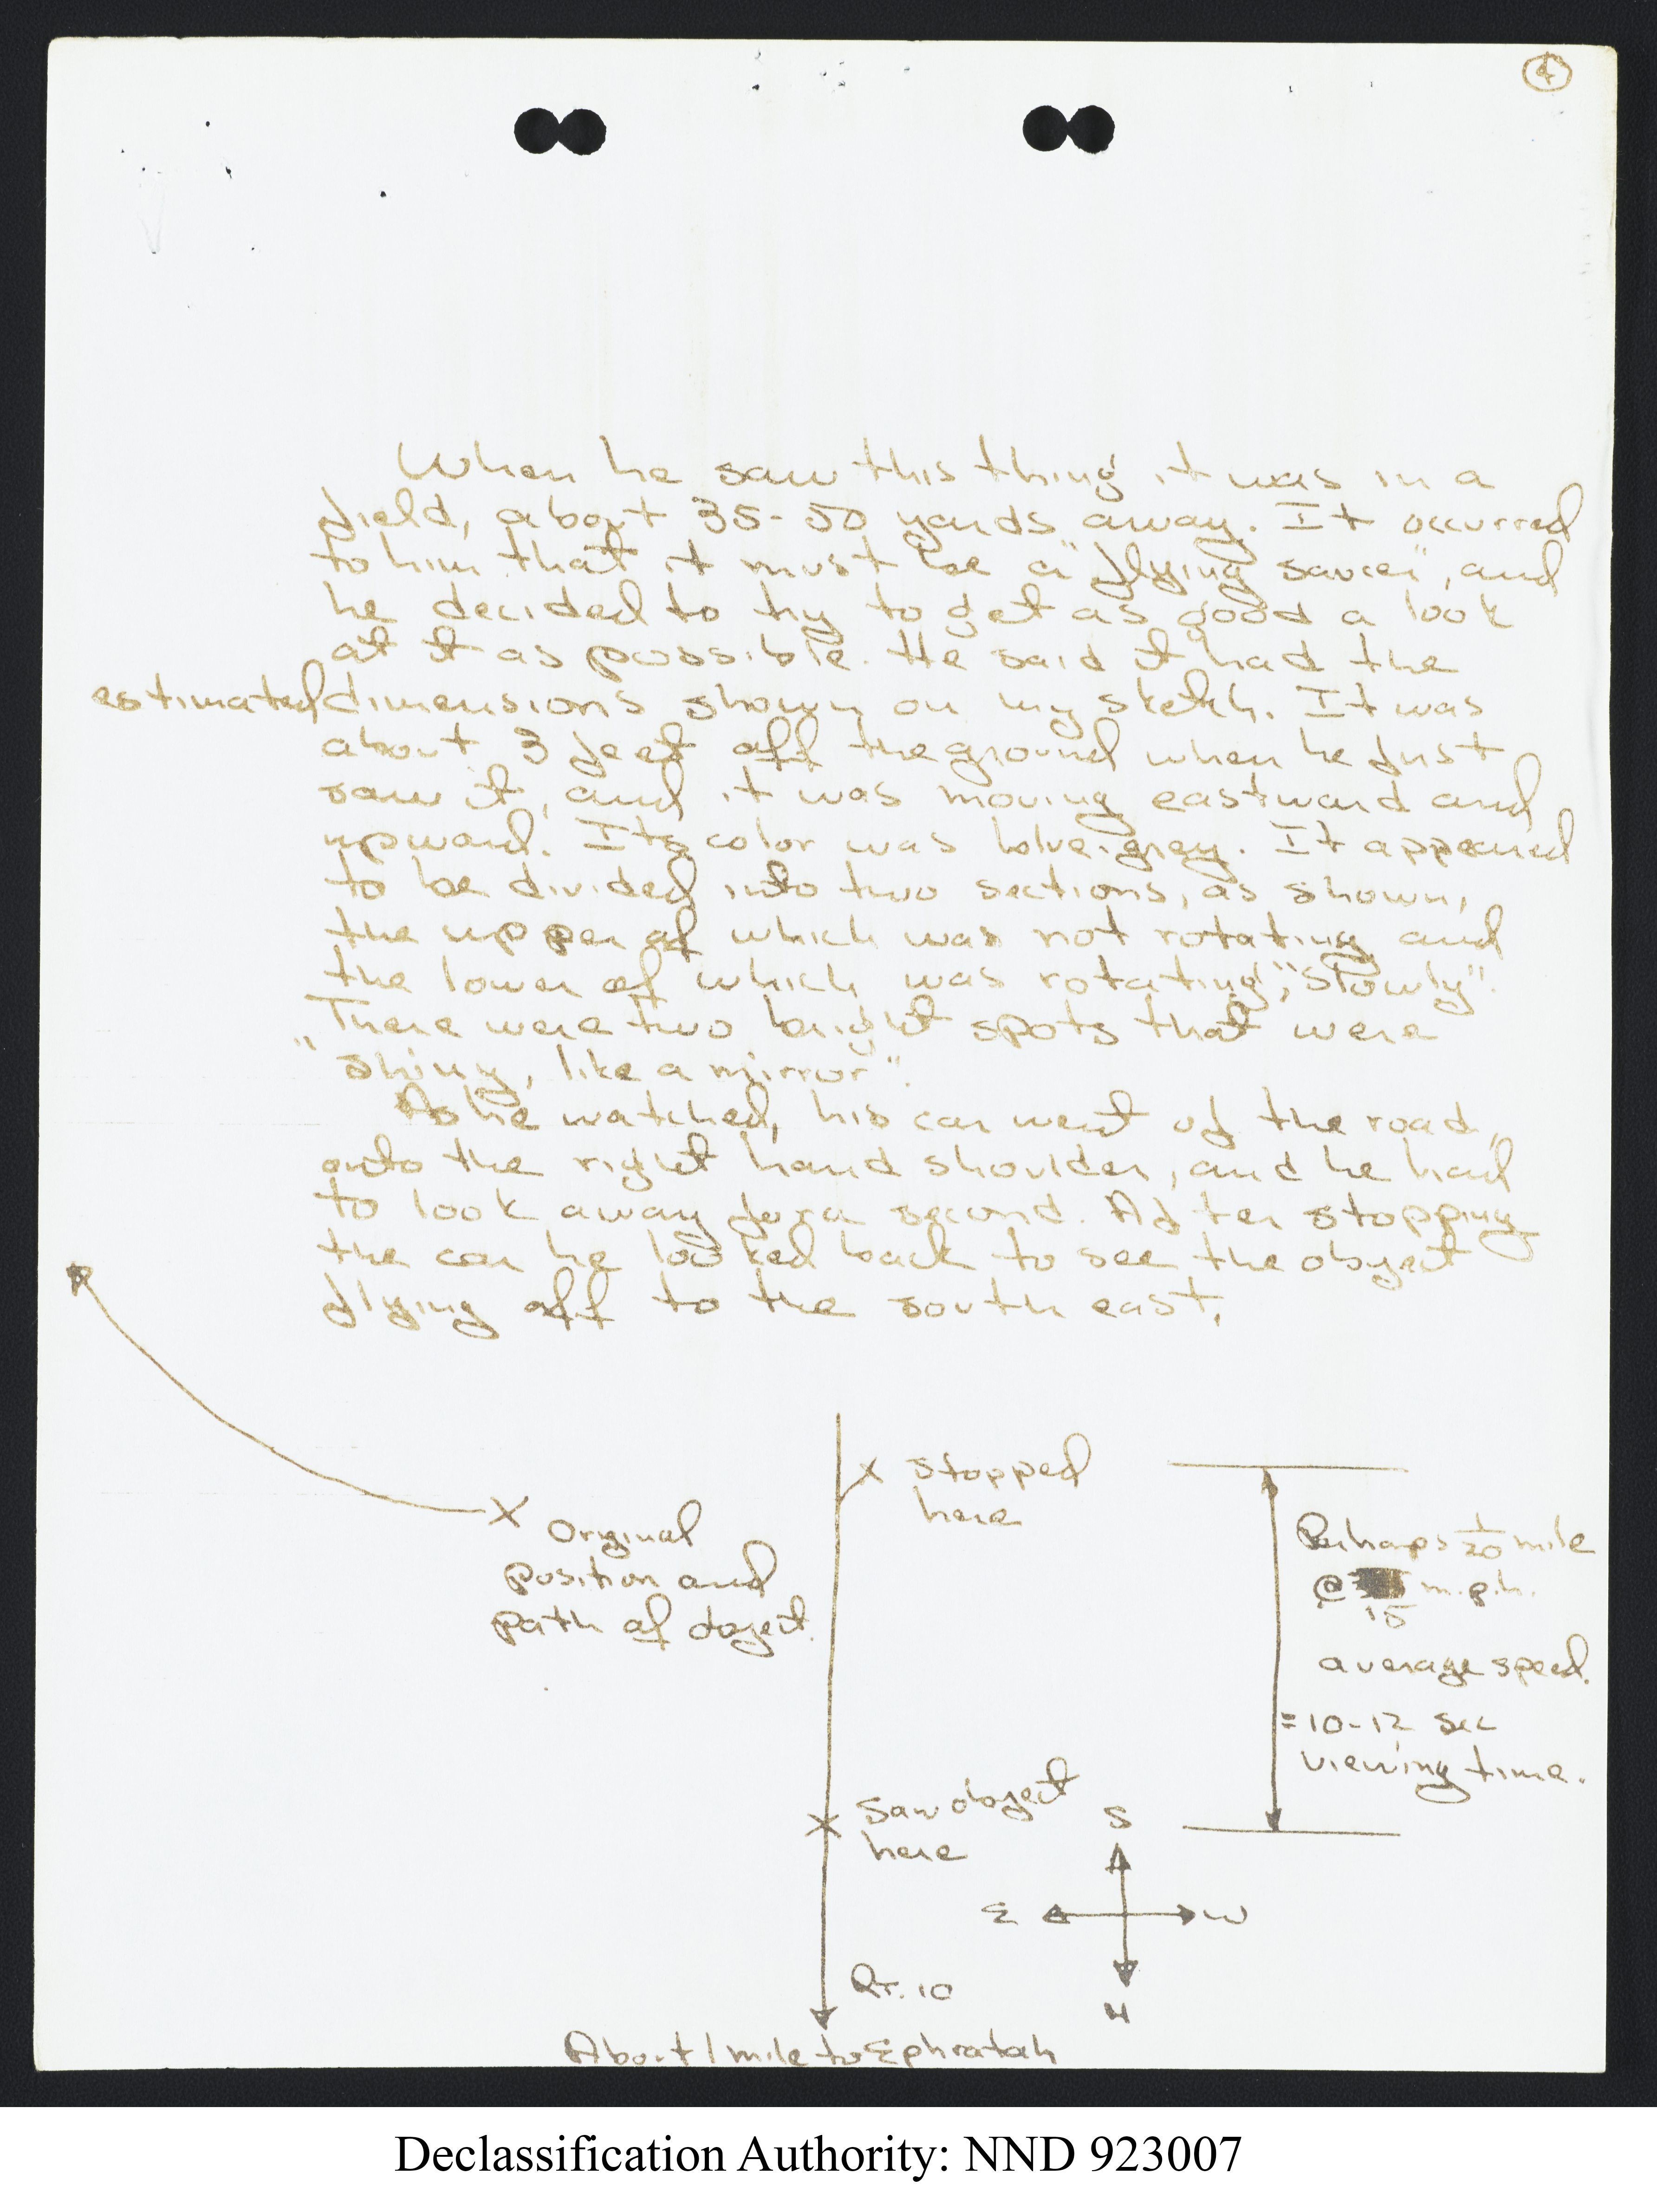 4
When he saw this thing it was in a
field, about 35-50 yards away. It occurred
to him that it must be a "flying saucer", and
he decided to try to get as good a look
at it as possible. He said it had the
estimated dimensions shown on my sketch. It was
about 3 feet off the ground when he first
saw it, and it was moving eastward and
upward. Its color was blue-gray. It appeared
to be divided into two sections, as shown,
the upper of which was not rotating and
the lower of which was rotating, "slowly".
There were two bright spots that were
"shiny, like a mirror".
As he watched, his car went off the road,
onto the right hand shoulder, and he had
to look away for a second. After stopping
the car he looked back to see the object
flying off to the south east.
X stopped
here
X Original
position and
path of object.
Perhaps 1/20 mile
@ m.p.h.
15
average speed.
= 10-12 sec
viewing time.
X Saw object
here
S
E W
N
Rt. 10
About 1 mile to Ephratah
Declassification Authority: NND 923007